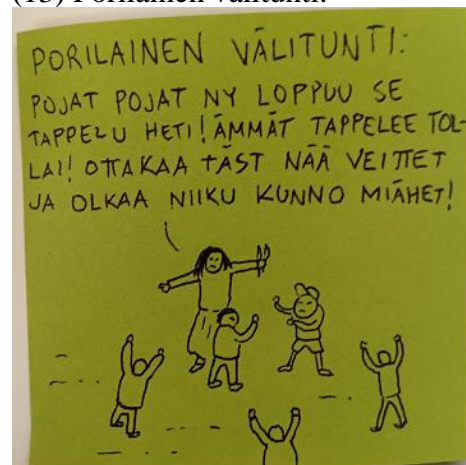 (15) Porilainen välitunti:
PORILAINEN VÄLITUNTI:
POJAT POJAT NY LOPPUU SE
TAPPELU HETI! ÄMMÄT TAPPELEE TOL-
LAI! OTTAKAA TÄST NÄÄ VEITTET
JA OLKAA NIIKU KUNNO MIÄHET!